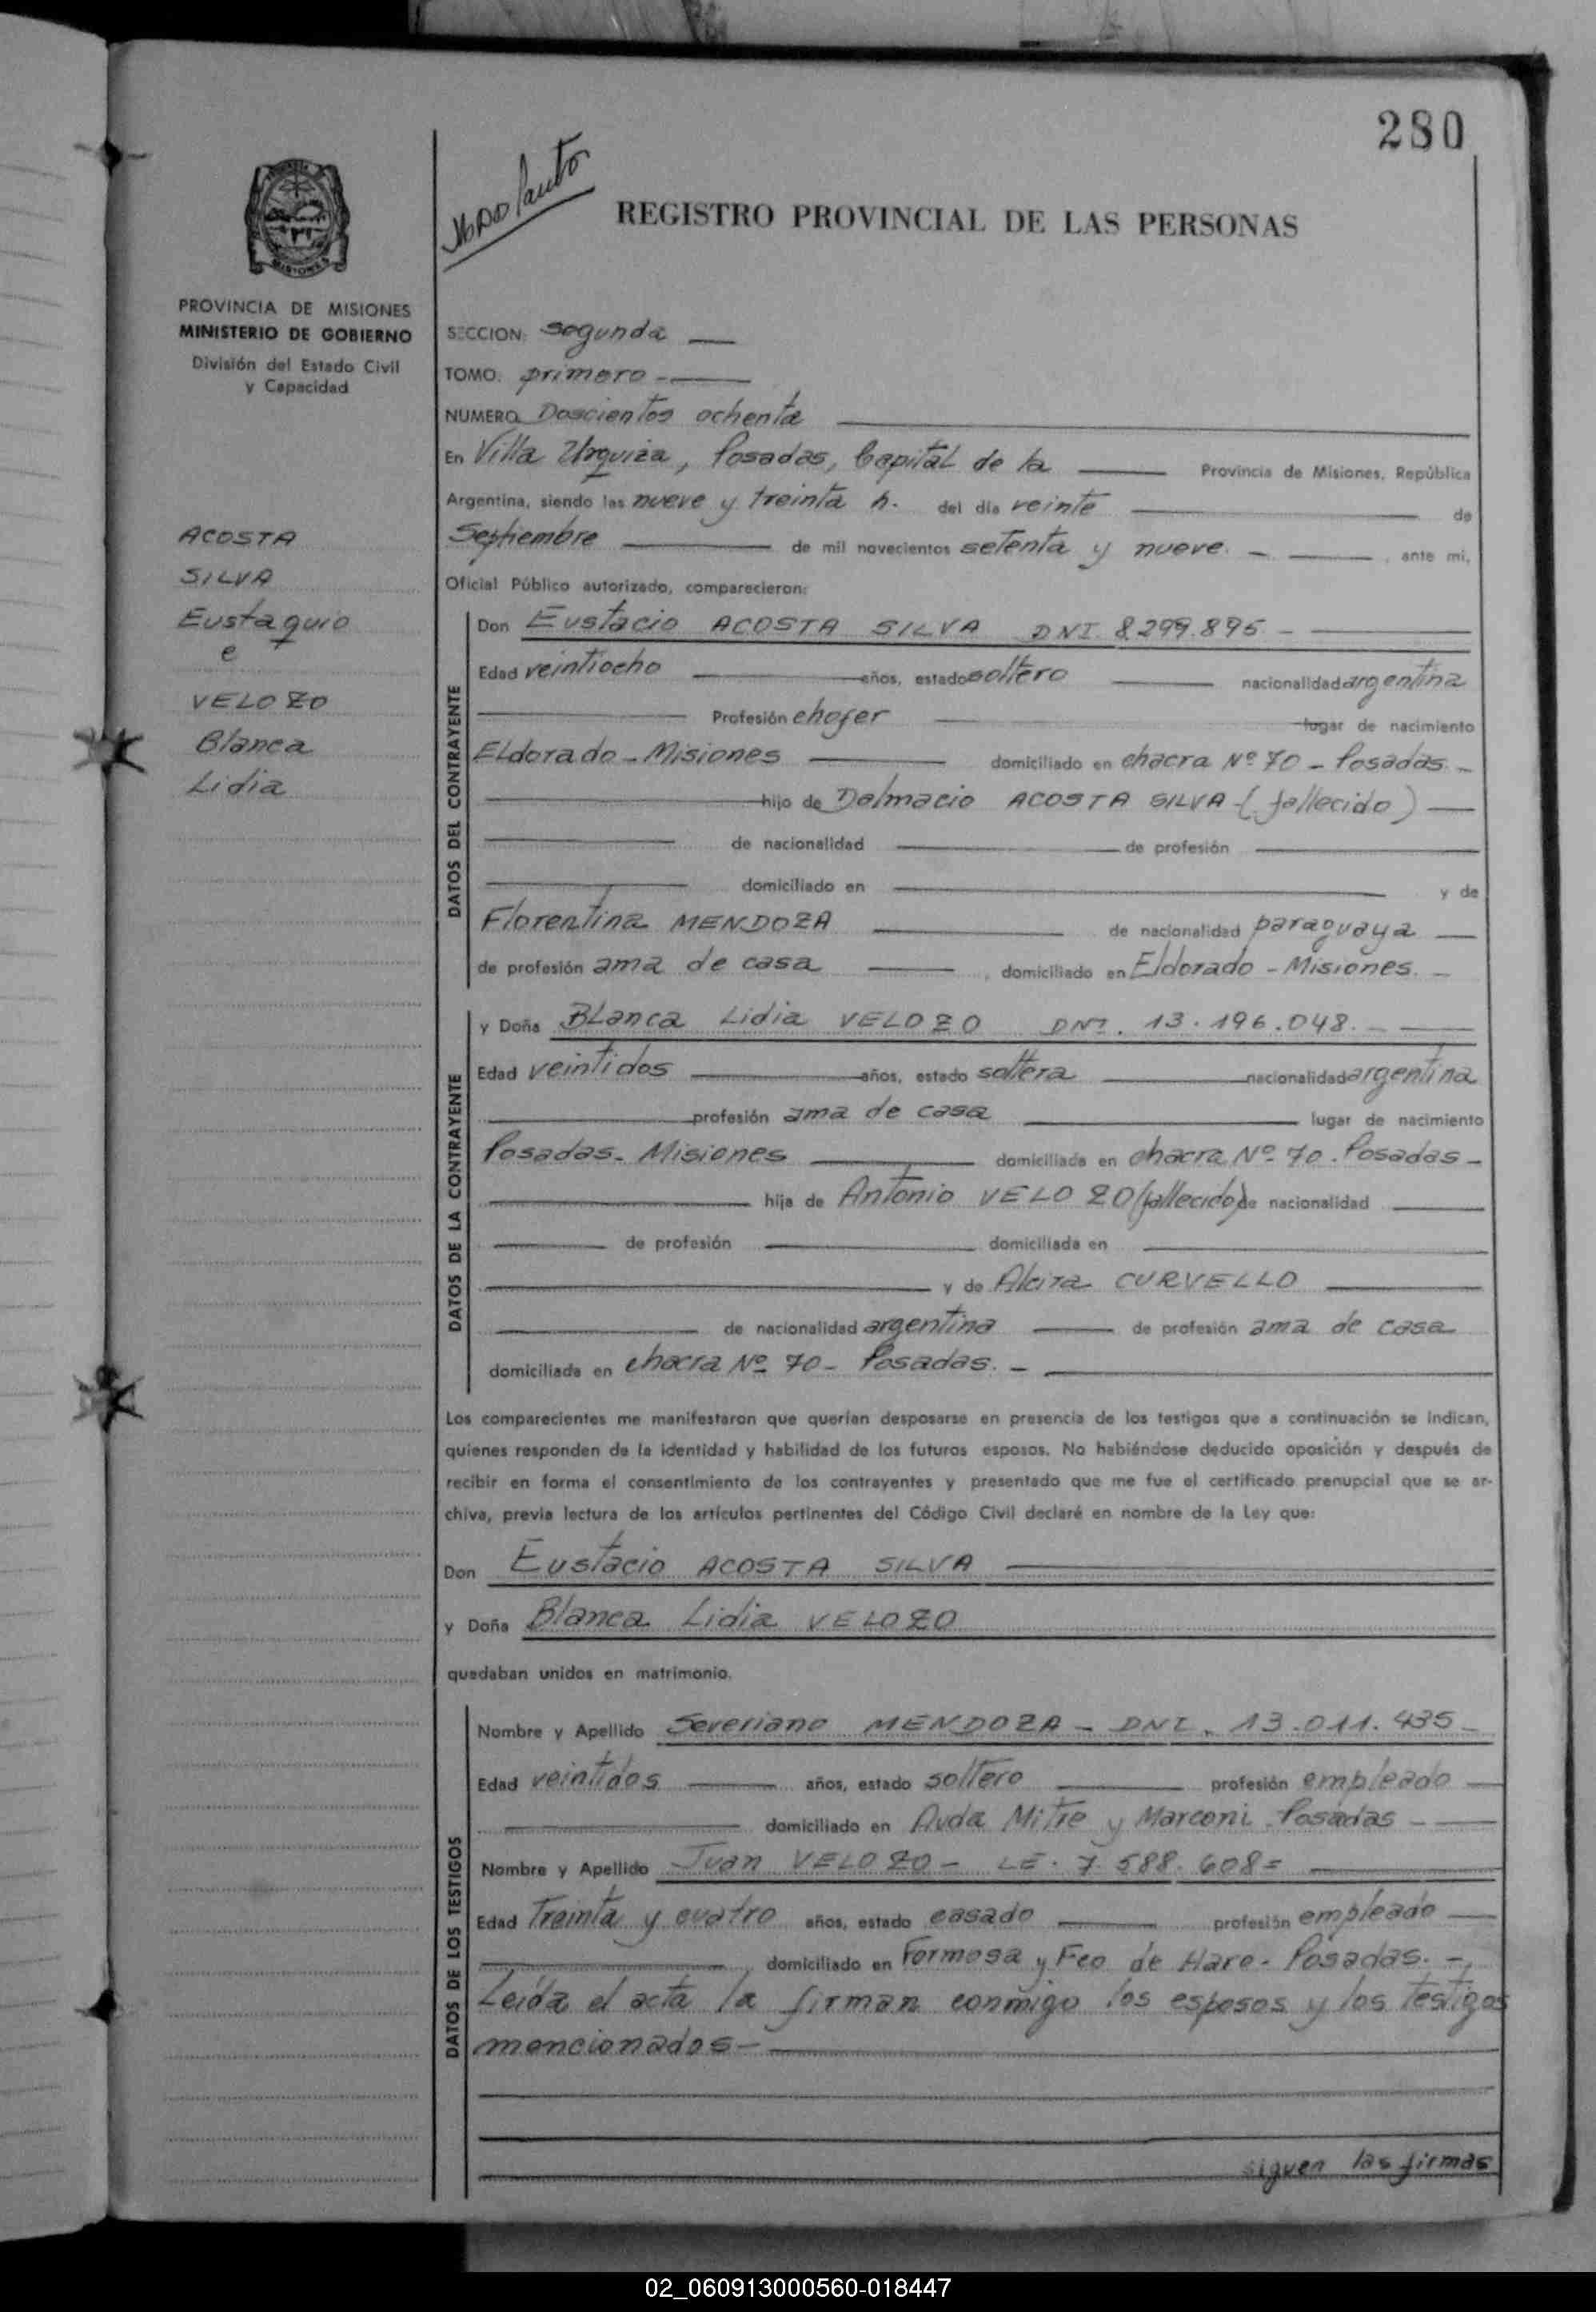 280
REGISTRO PROVINCIAL DE LAS PERSONAS
MISIONES
PROVINCIA DE MISIONES
MINISTERIO DE GOBIERNO
División del Estado Civil
y Capacidad
ACOSTA
SILVA
Eustaquio
e
VELOZO
Blanca
Lidia
SECCION: segunda
TOMO. primero -
NUMERO Doscientos ochenta
En Villa Urquiza, Posadas, Capital de la Provincia de Misiones, República
Argentina, siendo las nueve y treinta h. del día veinte de
Septiembre de mil novecientos setenta y nueve. - , ante mi,
Oficial Público autorizado, comparecieron:
DATOS DEL CONTRAYENTE
Don Eustacio ACOSTA SILVA DNI 8.299.895. -
Edad veintiocho años, estado soltero nacionalidad argentina
Profesión chofer lugar de nacimiento
ELdorado - Misiones domiciliado en chacra Nº 70 - Posadas. -
hijo de Dalmacio ACOSTA SILVA - (fallecido)
de nacionalidad de profesión
domiciliado en y de
Florentina MENDOZA de nacionalidad paraguaya
de profesión ama de casa , domiciliado en Eldorado - Misiones. -
DATOS DE LA CONTRAYENTE
y Doña BLanca Lidia VELOZO DNI. 13.196.048. -
Edad veintidos años, estado soltera nacionalidad argentina
profesión ama de casa lugar de nacimiento
Posadas. Misiones domiciliada en chacra Nº 70. Posadas -
hija de Antonio VELOZO (fallecido) de nacionalidad
de profesión domiciliada en
y de Alcira CURVELLO
de nacionalidad argentina de profesión ama de casa
domiciliada en chacra Nº 70 - Posadas. -
Los comparecientes me manifestaron que querían desposarse en presencia de los testigos que a continuación se indican,
quienes responden de la identidad y habilidad de los futuros esposos. No habiéndose deducido oposición y después de
recibir en forma el consentimiento de los contrayentes y presentado que me fue el certificado prenupcial que se ar-
chiva, previa lectura de los artículos pertinentes del Código Civil declaré en nombre de la Ley que:
Don Eustacio ACOSTA SILVA
y Doña Blanca Lidia VELOZO
quedaban unidos en matrimonio.
DATOS DE LOS TESTIGOS
Nombre y Apellido Severiano MENDOZA - DNI. 13.011.435 -
Edad veintidos años, estado soltero profesión empleado
domiciliado en Avda Mitre y Marconi - Posadas -
Nombre y Apellido Juan VELOZO - LE. 7.588.608 =
Edad Treinta y cuatro años, estado casado profesión empleado
domiciliado en Formosa y Fco de Haro - Posadas. -
Leída el acta la firman conmigo los esposos y los testigos
mencionados -
siguen las firmas
02_060913000560-018447